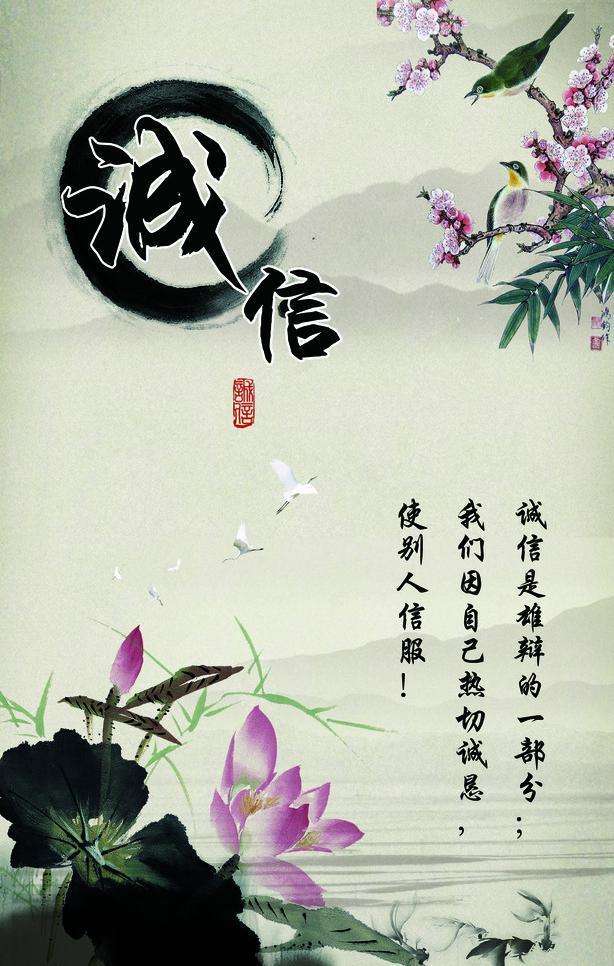 诚信
誠信
诚信是雄辩的一部分；
我们因自己热切诚恳，
使别人信服！